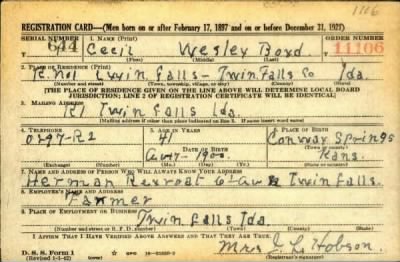 1116
REGISTRATION CARD—(Men born on or after February 17, 1897 and on or before December 31, 1921)
SERIAL NUMBER 1. NAME (Print) ORDER NUMBER
644 Cecil Wesley Boyd 11106
(First) (Middle) (Last)
2. PLACE OF RESIDENCE (Print)
R. no 1 Twin Falls - Twin Falls Co Ida.
(Number and street) (Town, township, village, or city) (County) (State)
[THE PLACE OF RESIDENCE GIVEN ON THE LINE ABOVE WILL DETERMINE LOCAL BOARD
JURISDICTION; LINE 2 OF REGISTRATION CERTIFICATE WILL BE IDENTICAL]
3. MAILING ADDRESS
R1 Twin Falls Ida.
[Mailing address if other than place indicated on line 2. If same insert word same]
4. TELEPHONE 5. AGE IN YEARS 6. PLACE OF BIRTH
0297-R2 41 Conway Springs
DATE OF BIRTH (Town or county)
1900 Kans.
(Exchange) (Number) (Mo.) (Day) (Yr.) (State or country)
7. NAME AND ADDRESS OF PERSON WHO WILL ALWAYS KNOW YOUR ADDRESS
Herman Rexroat 6th Av E Twin Falls.
8. EMPLOYER'S NAME AND ADDRESS
Farmer
9. PLACE OF EMPLOYMENT OR BUSINESS
Twin Falls Ida.
(Number and street or R. F. D. number) (Town) (County) (State)
I AFFIRM THAT I HAVE VERIFIED ABOVE ANSWERS AND THAT THEY ARE TRUE.
D. S. S. Form 1
(Revised 1-1-42) (over) Mrs. Hobson.